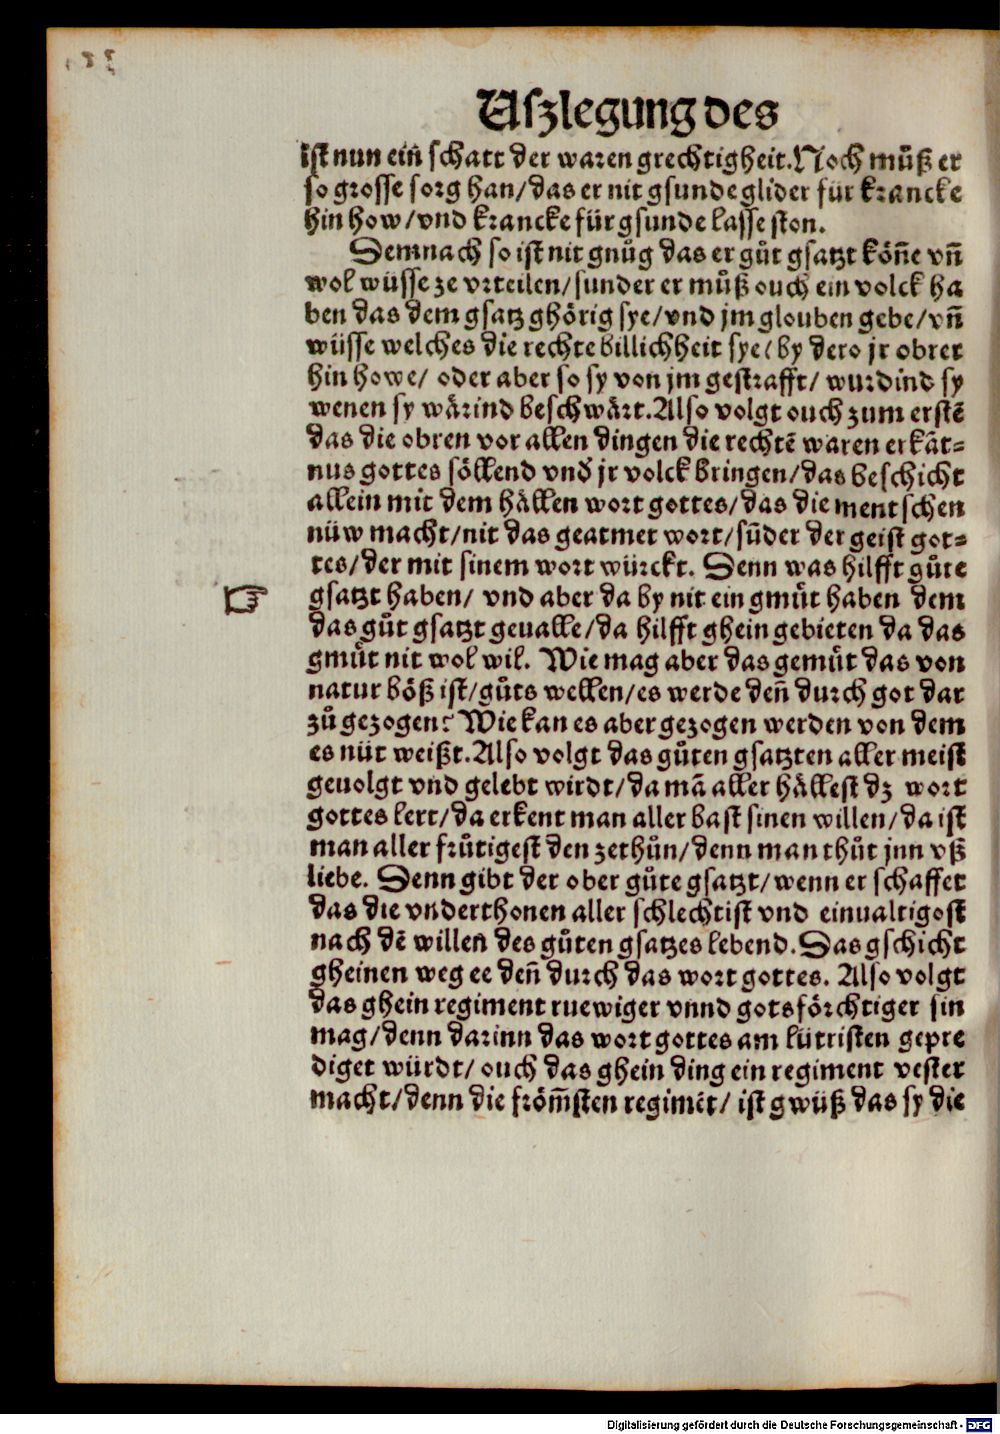 Uſzlegung des
iſt nun ein̄ ſchatt der waren grechtigheit. Noch můß er
ſo groſſe ſorg han/das er nit gſunde glider für krancke
hin how/vnd krancke für gſunde laſſe ſton.
Demnach ſo iſt nit gnůg das er gůt gſatzt köñe vñ
wol wüſſe ze vrteilen/ſunder er můß ouch ein volck ha
ben das dem gſatz ghörig ſye/vnd jm glouben gebe/vñ
wüſſe welches die rechte billichheit ſye/by dero jr obrer
hin howe/ oder aber ſo ſy von jm geſtrafft/ wurdind ſy
wenen ſy wärind beſchwärt. Alſo volgt ouch zum erſtē
das die obren vor allen dingen die rechtē waren erkāt⸗
nus gottes ſöllend vnd jr volck bringen/das beſchicht
allein mit dem hällen wort gottes/das die mentſchen
nüw macht/nit das geatmet wort/ſūder der geiſt got⸗
tes/der mit ſinem wort würckt. Denn was hilfft gůte
☞ gſatzt haben/ vnd aber da by nit ein gmůt haben dem
das gůt gſatzt geualle/da hilfft ghein gebieten da das
gmůt nit wol wil. Wie mag aber das gemůt das von
natur böß iſt/gůts wellen/es werde deñ durch got dar
zů gezogen? Wie kan es aber gezogen werden von dem
es nüt weißt. Alſo volgt das gůten gſatzten aller meiſt
geuolgt vnd gelebt wirdt/da mā aller hälleſt dz wort
gottes lert/da erkent man aller baſt ſinen willen/da iſt
man aller frůtigeſt den zethůn/denn man thůt jnn vß
liebe. Denn gibt der ober gůte gſatzt/wenn er ſchaffet
das die vnderthonen aller ſchlechtiſt vnd einualtigoſt
nach dē willen des gůten gſatzes lebend. Das gſchicht
gheinen weg ee deñ durch das wort gottes. Alſo volgt
das ghein regiment ruewiger vnnd gotsförchtiger ſin
mag/denn darinn das wort gottes am lütriſten gepre
diget würdt/ ouch das ghein ding ein regiment veſter
macht/denn die fröm̄ſten regimēt/ iſt gwüß das ſy die
Digitalisierung gefördert durch die Deutsche Forschungsgemeinschaft - DFG